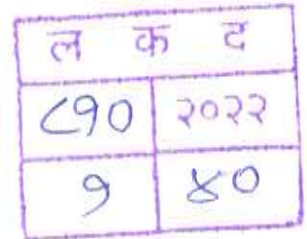 ल क द
८९० २०२२
१ ४०